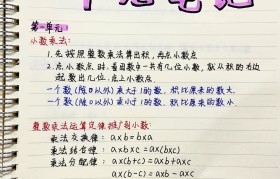 第一单元
小数乘法:
1.先按照整数乘法算出积,再点小数点
2.点小数点时,看因数中一共有几位小数,就从积的右边
起数出几位,点上小数点
一个数(除0以外)乘大于1的数,积比原来的数大.
一个数(除0以外)乘小于1的数,积比原来的数小.
整数乘法运算定律推广到小数:
乘法交换律: a×b=b×a
乘法结合律: a×b×c=a×(b×c)
乘法分配律: a×(b+c)=a×b+a×c
a×(b-c)=a×b-a×c